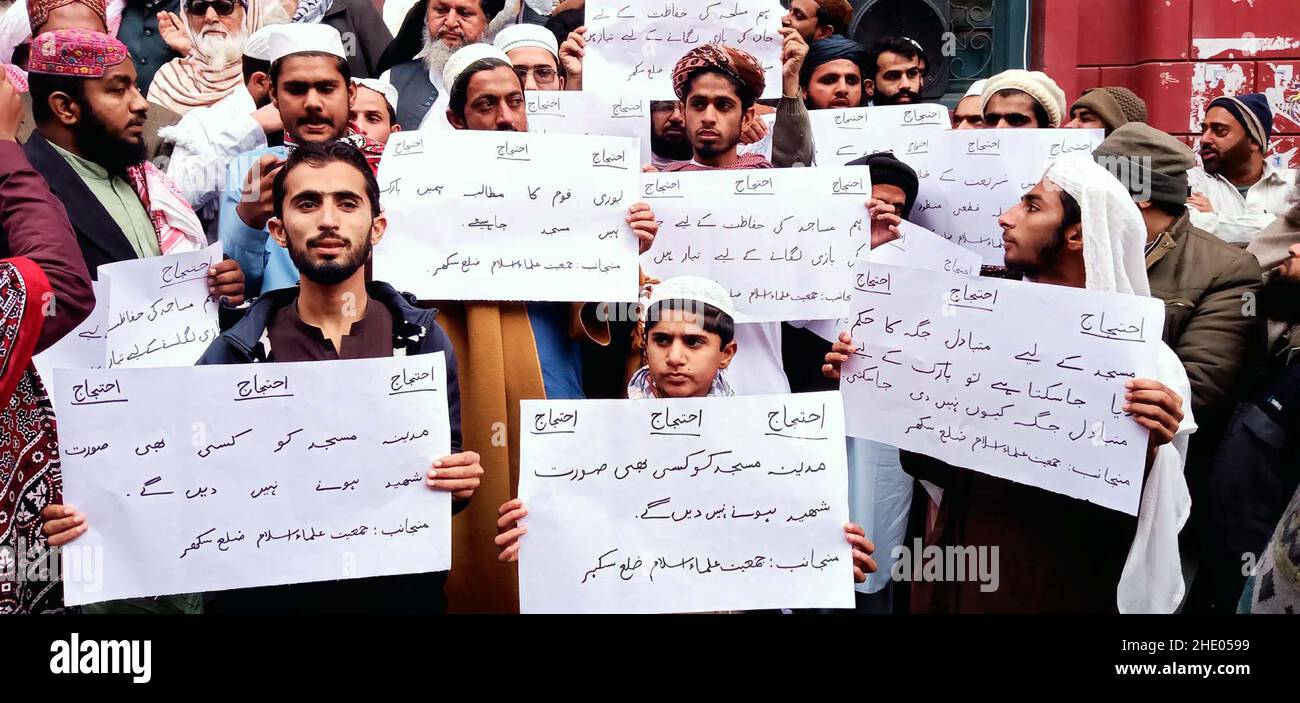 ہم مساجد کی حفاظت کے لیے
جان کی بازی لگانے کے لیے تیار ہیں
ضلع سکھر
احتجاج احتجاج
احتجاج احتجاج احتجاج
پوری قوم کا مطالبہ ہمیں پارک
نہیں مسجد چاہیئے۔
منجانب: جمعیت علماء اسلام ضلع سکھر۔
احتجاج احتجاج احتجاج
ہم مساجد کی حفاظت کے لیے
کی بازی لگانے کے لیے تیار ہیں
منجانب: جمعیت علماء اسلام
احتجاج احتجاج
شریعت کے
قطعی منظور
احتجاج
مساجد کی حفاظت
لگانے کے لیے
احتجاج احتجاج احتجاج
مسجد کے لیے متبادل جگہ کا حکم
دیا جاسکتا ہے تو پارک کے لیے
متبادل جگہ کیوں نہیں دی جاسکتی
منجانب: جمعیت علماء اسلام ضلع سکھر
احتجاج احتجاج احتجاج
مدینہ مسجد کو کسی بھی صورت
شھید ہونے نہیں دیں گے۔
منجانب: جمعیت علماء اسلام ضلع سکھر
احتجاج احتجاج احتجاج
مدینہ مسجد کو کسی بھی صورت
شھید ہونے نہیں دیں گے۔
منجانب: جمعیت علماء اسلام ضلع سکھر
alamy
Image ID: 2HE0599
www.alamy.com